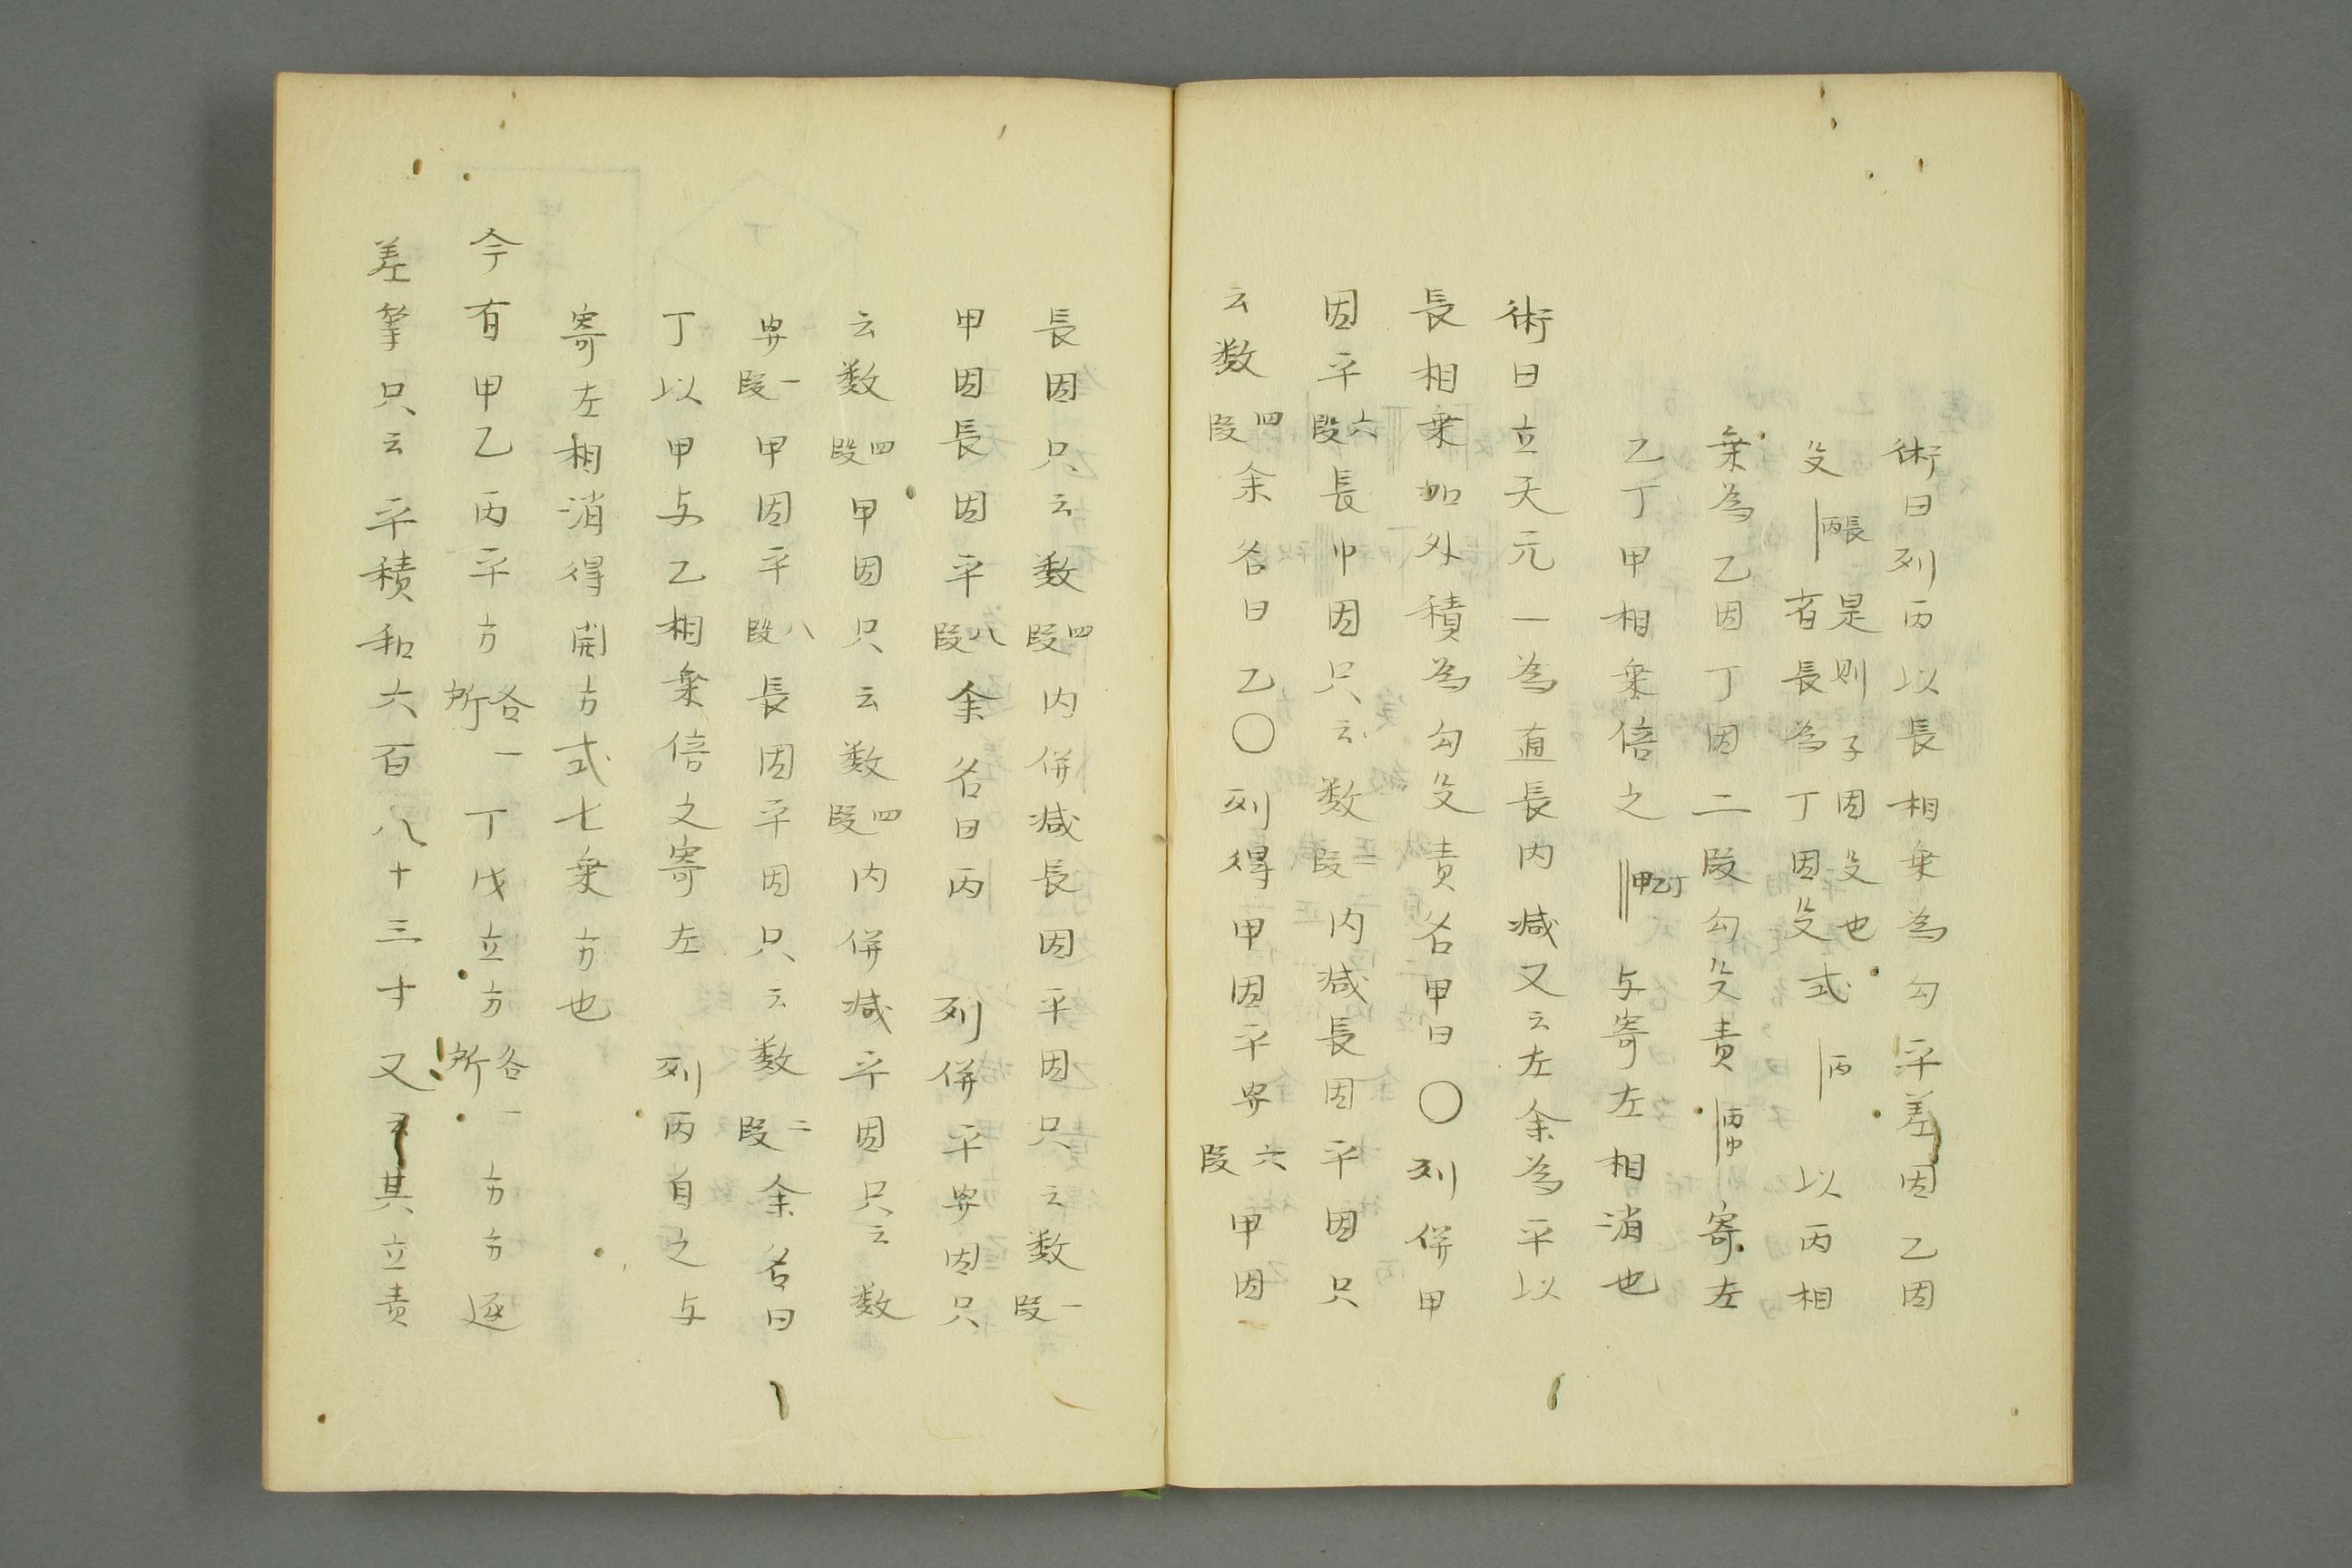 術曰列丙以長相乗為勾平差因乙因
殳 丙長 是則子因殳也
者長為丁因殳式 丙 以丙相
乗為乙因丁因二段勾殳責 丙巾 寄左
乙丁甲相乗倍之 甲乙丁 与寄左相消也
術曰立天元一為直長内减又云左余為平以
長相乗加外積為勾殳責名甲曰〇列併甲
因平六段長巾因只云数二段内减長因平因只
云数四段余名曰乙〇列得甲因平再六段甲因
長因只云数四段内併减長因平因只云数一段
甲因長因平八段余名曰丙 列併平再因只
云数四段甲因只云数四段内併减平因只云数
再一段甲因平八段長因平因只云数二段余名曰
丁以甲与乙相乗倍之寄左 列丙自之与
寄左相消得開方式七乗方也
今有甲乙丙平方各一所丁戊立方各一所方方逐
差等只云平積和六百八十三寸又云其立責